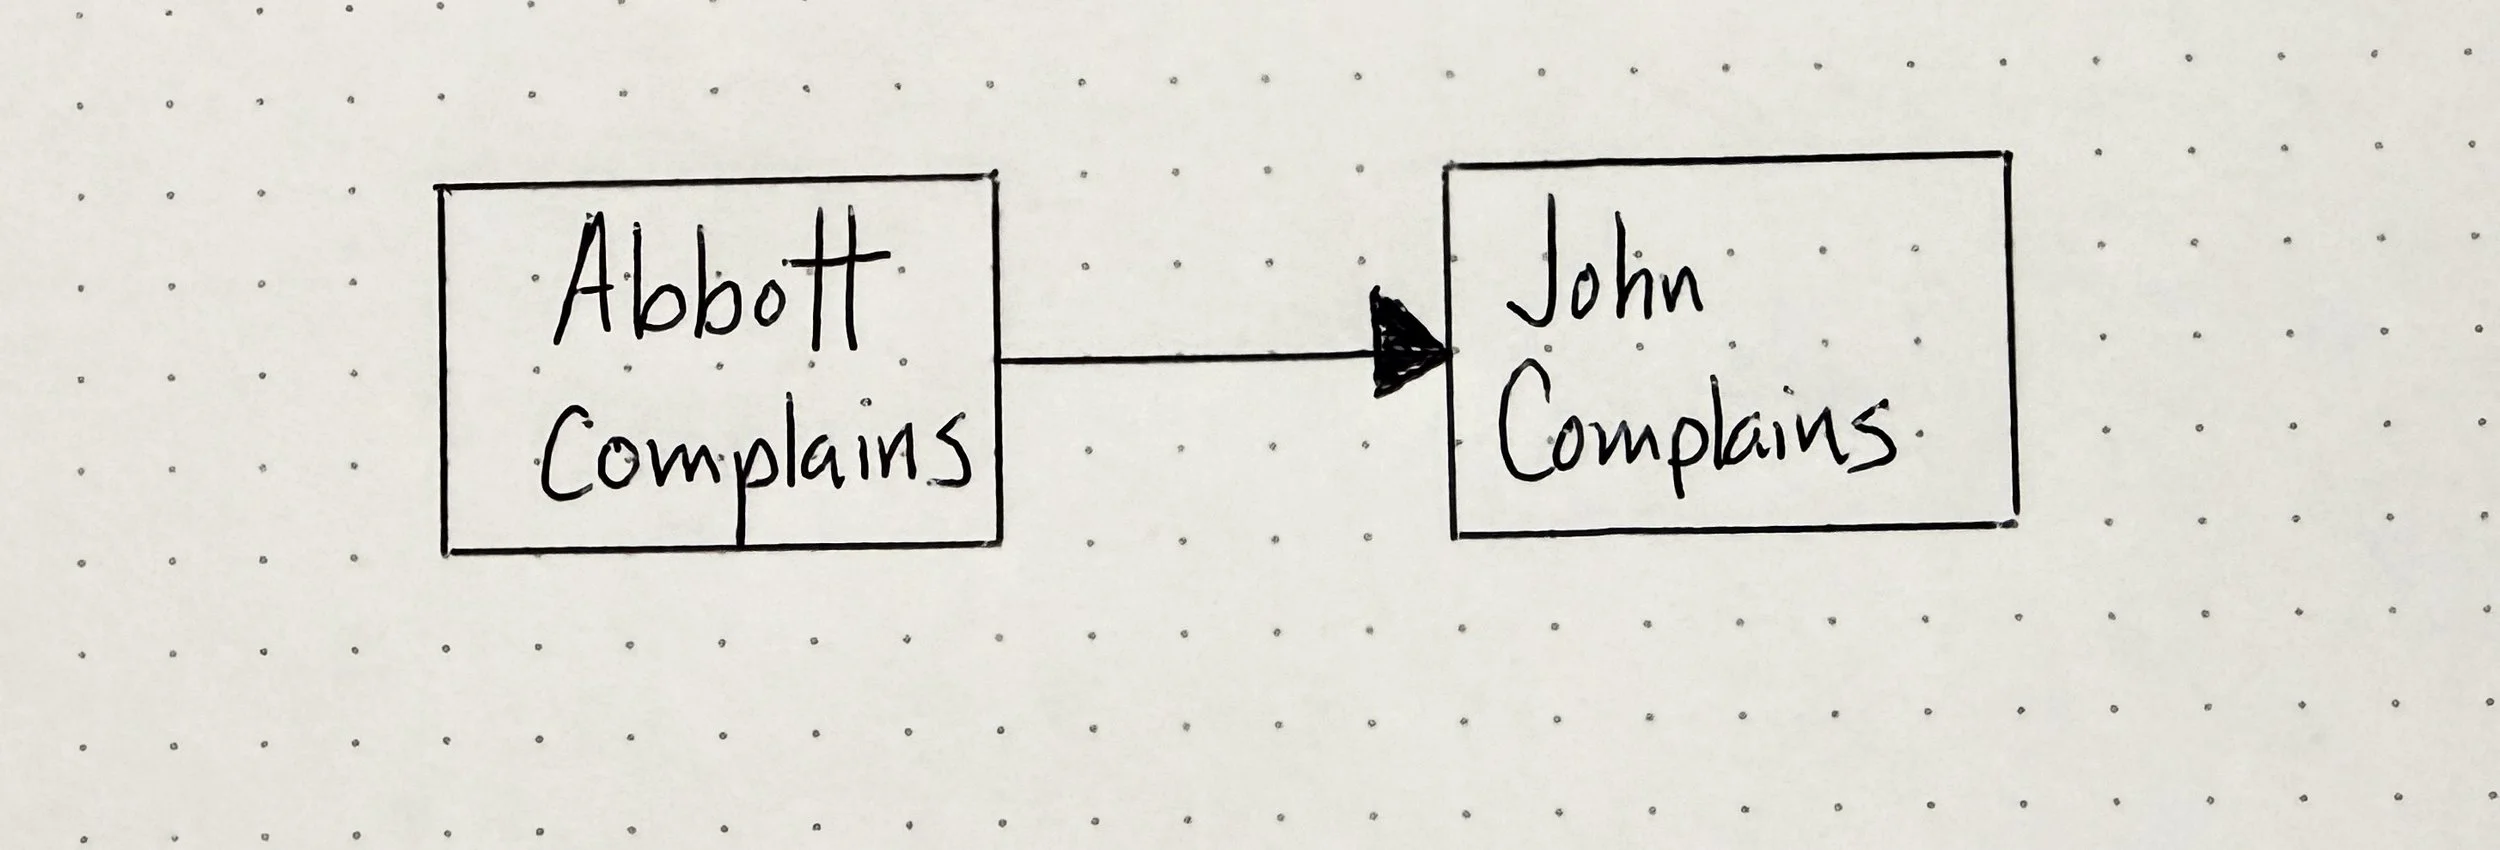 Abbott
Complains
John
Complains